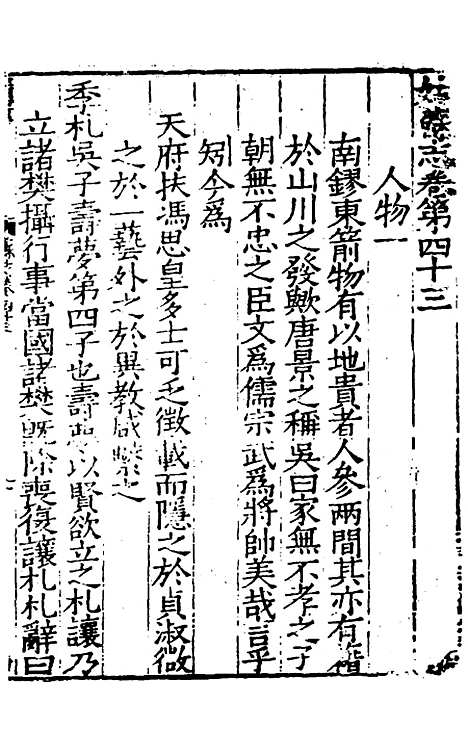 姑蘇志卷第四十三
人物一
南鏐東箭物有以地貴者人參兩間其亦有藉
於山川之發歟唐景之稱吳曰家無不孝之子
朝無不忠之臣文為儒宗武為將帥美哉言乎
矧今為
天府扶馮思皇多士可乏徵載而隱之於貞淑微
之於一藝外之於異教咸繫之
季札吳子壽夢第四子也壽夢以賢欲立之札讓乃
立諸樊攝行事當國諸樊旣除喪復讓札札辭曰